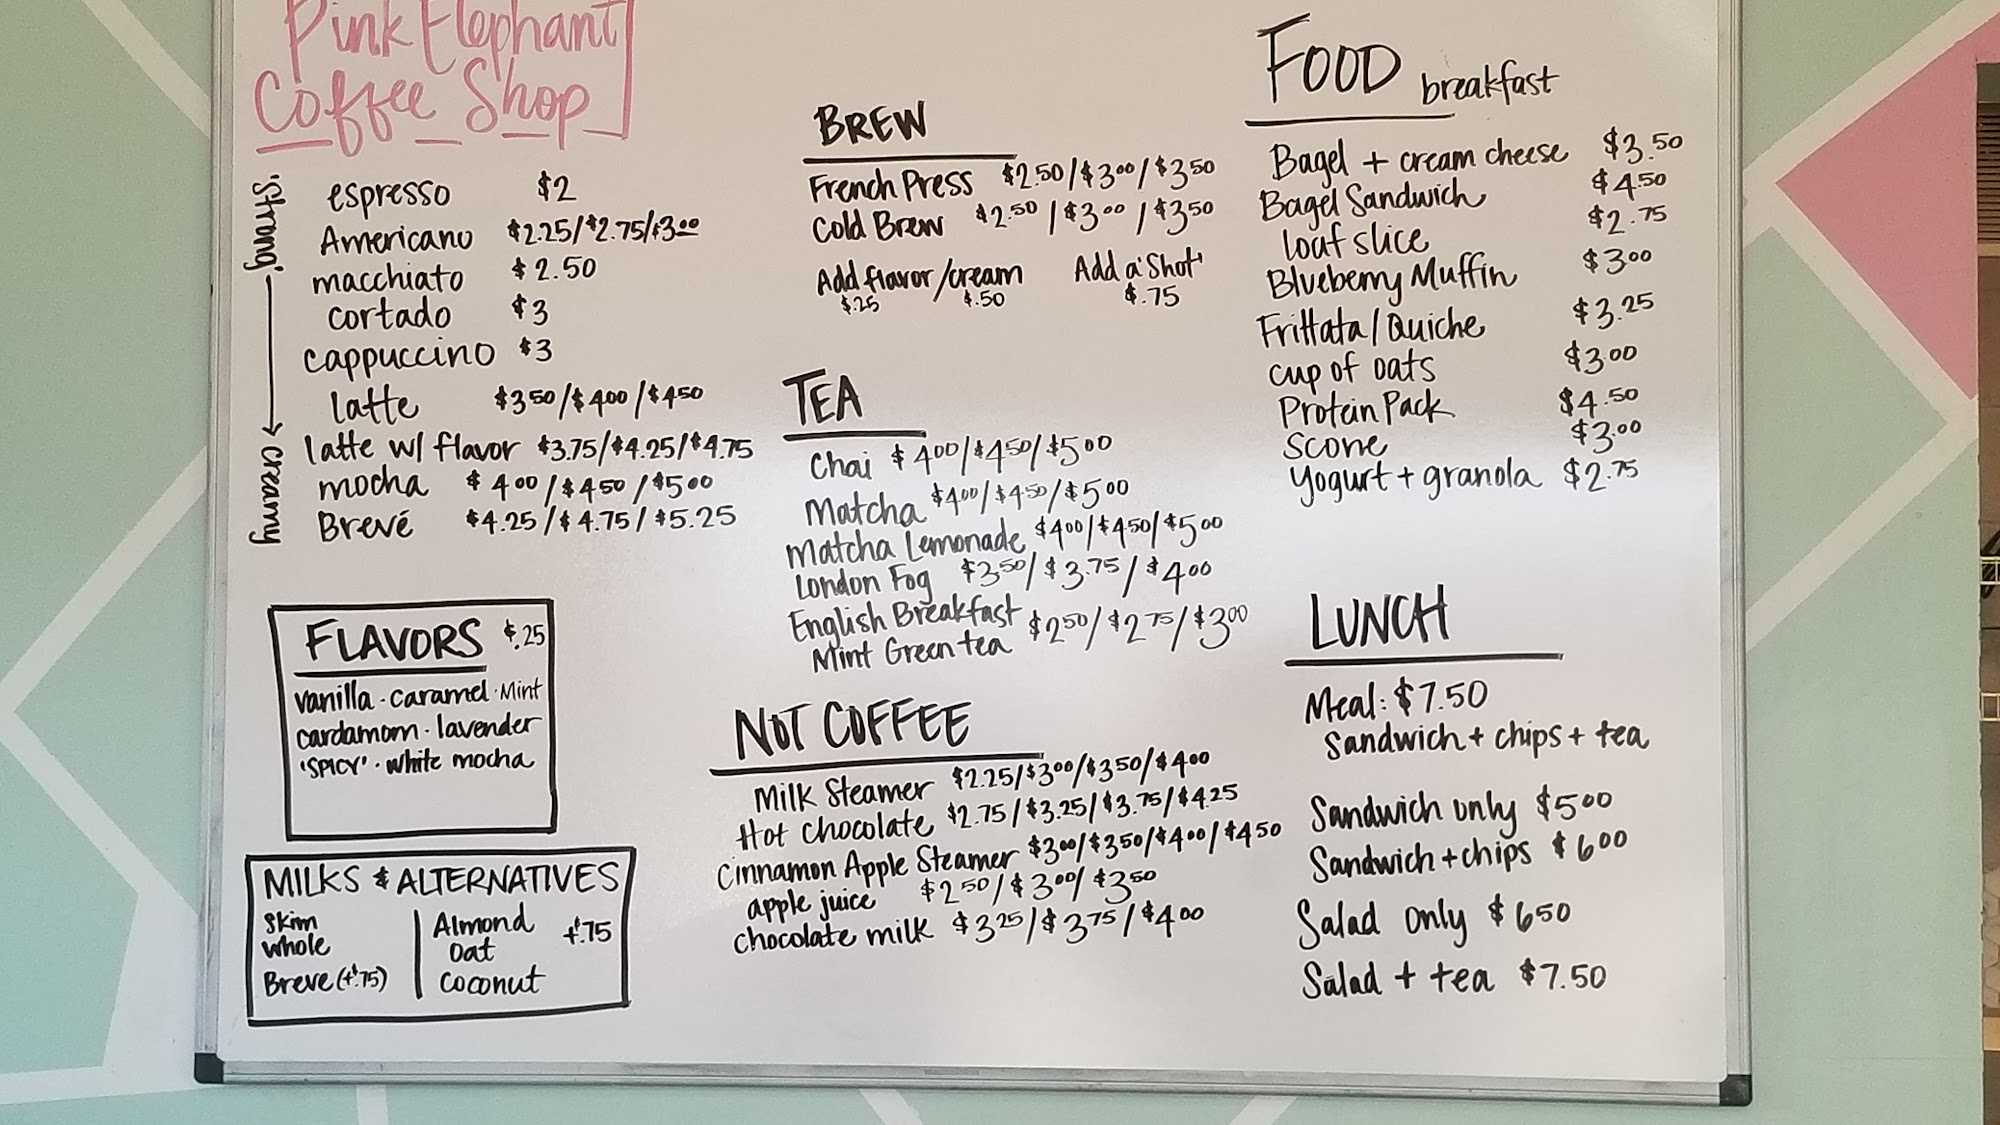 Pink Elephant
Coffee Shop
'Strong'
creamy
espresso $2
Americano $2.25/$2.75/$3.00
macchiato $2.50
cortado $3
cappuccino $3
latte $3.50/$4.00/$4.50
latte w/ flavor $3.75/$4.25/$4.75
mocha $4.00/$4.50/$5.00
Brevé $4.25/$4.75/$5.25
FLAVORS $.25
vanilla · caramel · Mint
cardamom · lavender
'SPICY' · white mocha
MILKS & ALTERNATIVES
Skim
whole
Breve (+$.75)
Almond
Oat
Coconut
+$.75
BREW
French Press $2.50/$3.00/$3.50
Cold Brew $2.50/$3.00/$3.50
Add flavor/cream Add a 'Shot'
$.25 $.50 $.75
TEA
Chai $4.00/$4.50/$5.00
Matcha $4.00/$4.50/$5.00
Matcha Lemonade $4.00/$4.50/$5.00
London Fog $3.50/$3.75/$4.00
English Breakfast
Mint Green tea $2.50/$2.75/$3.00
NOT COFFEE
Milk Steamer $2.25/$3.00/$3.50/$4.00
Hot Chocolate $2.75/$3.25/$3.75/$4.25
Cinnamon Apple Steamer $3.00/$3.50/$4.00/$4.50
apple juice $2.50/$3.00/$3.50
chocolate milk $3.25/$3.75/$4.00
FOOD breakfast
Bagel + cream cheese $3.50
Bagel Sandwich $4.50
loaf slice $2.75
Blueberry Muffin $3.00
Frittata/Quiche $3.25
cup of oats $3.00
Protein Pack $4.50
Scone $3.00
Yogurt + granola $2.75
LUNCH
Meal: $7.50
Sandwich + chips + tea
Sandwich only $5.00
Sandwich + chips $6.00
Salad only $6.50
Salad + tea $7.50